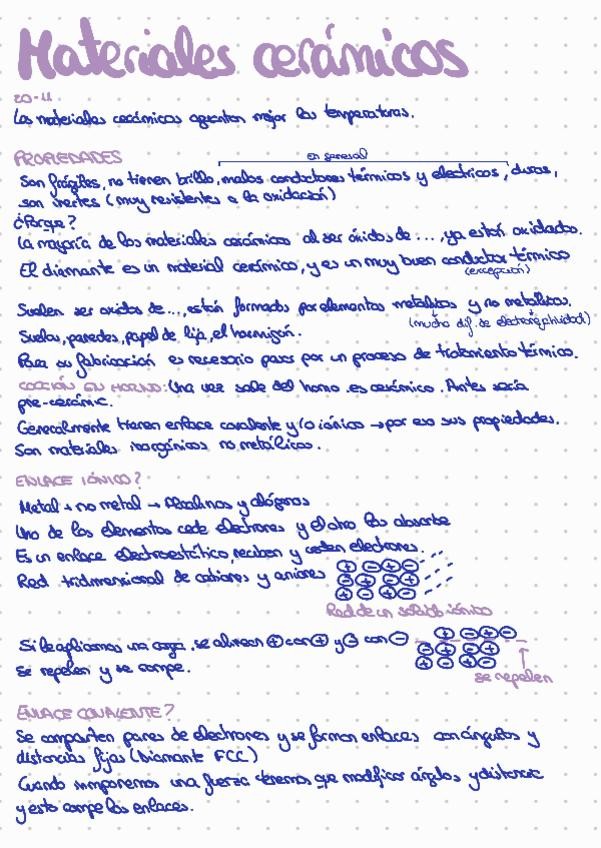 Materiales cerámicos
20-11
Los materiales cerámicos aguantan mejor las temperaturas.
PROPIEDADES
en general
Son frágiles, no tienen brillo, malos conductores térmicos y electricos, duros,
son inertes (muy resistentes a la oxidación)
¿Porque?
La mayoría de los materiales cerámicos al ser óxidos de ..., ya están oxidados.
El diamante es un material cerámico, y es un muy buen conductor térmico
(excepción)
Suelen ser oxidos de ..., están formados por elementos metálicos y no metálicos.
(mucha dif. de electronegatividad)
Suelos, paredes, papel de lija, el hormigón.
Para su fabricación es necesario pasar por un proceso de tratamiento térmico.
COCCIÓN EN HORNO: Una vez sale del horno es cerámico. Antes sería
pre-cerámic.
Generalmente tienen enlace covalente y/o iónico → por eso sus propiedades.
Son materiales inorgánicos no metálicos.
ENLACE IÓNICO?
Metal + no metal → Alcalinos y alógenos
Uno de los elementos cede electrones y el otro los absorbe
Es un enlace electroestático, reciben y ceden electrones.
Red tridimensional de cationes y aniones
+ - + -
- + - +
+ - + -
Red de un sólido iónico
Si le aplicamos una carga, se alinean + con + y - con -
se repelen y se rompe.
se repelen
ENLACE COVALENTE?
Se comparten pares de electrones y se forman enlaces con ángulos y
distancias fijas (Diamante FCC)
Cuando imponemos una fuerza tenemos que modificar ángulos y distancia
y esto rompe los enlaces.